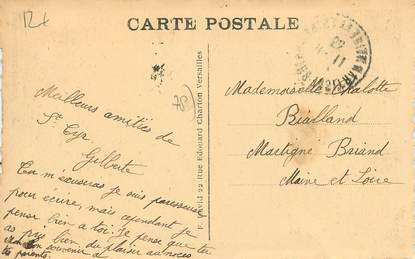 CARTE POSTALE
Meilleurs amitiés de
St Cyr
Gilberte
Tu m'excuseras je suis paresseuse
pour écrire, mais cependant je
pense bien a toi. Je pense que tu
as pris bien du plaisir au noces
Mon bon souvenir a
tes parents.
F. David 22 Rue Edouard Charton Versailles
Mademoiselle
Bialland
Martigné Briand
Maine et Loire